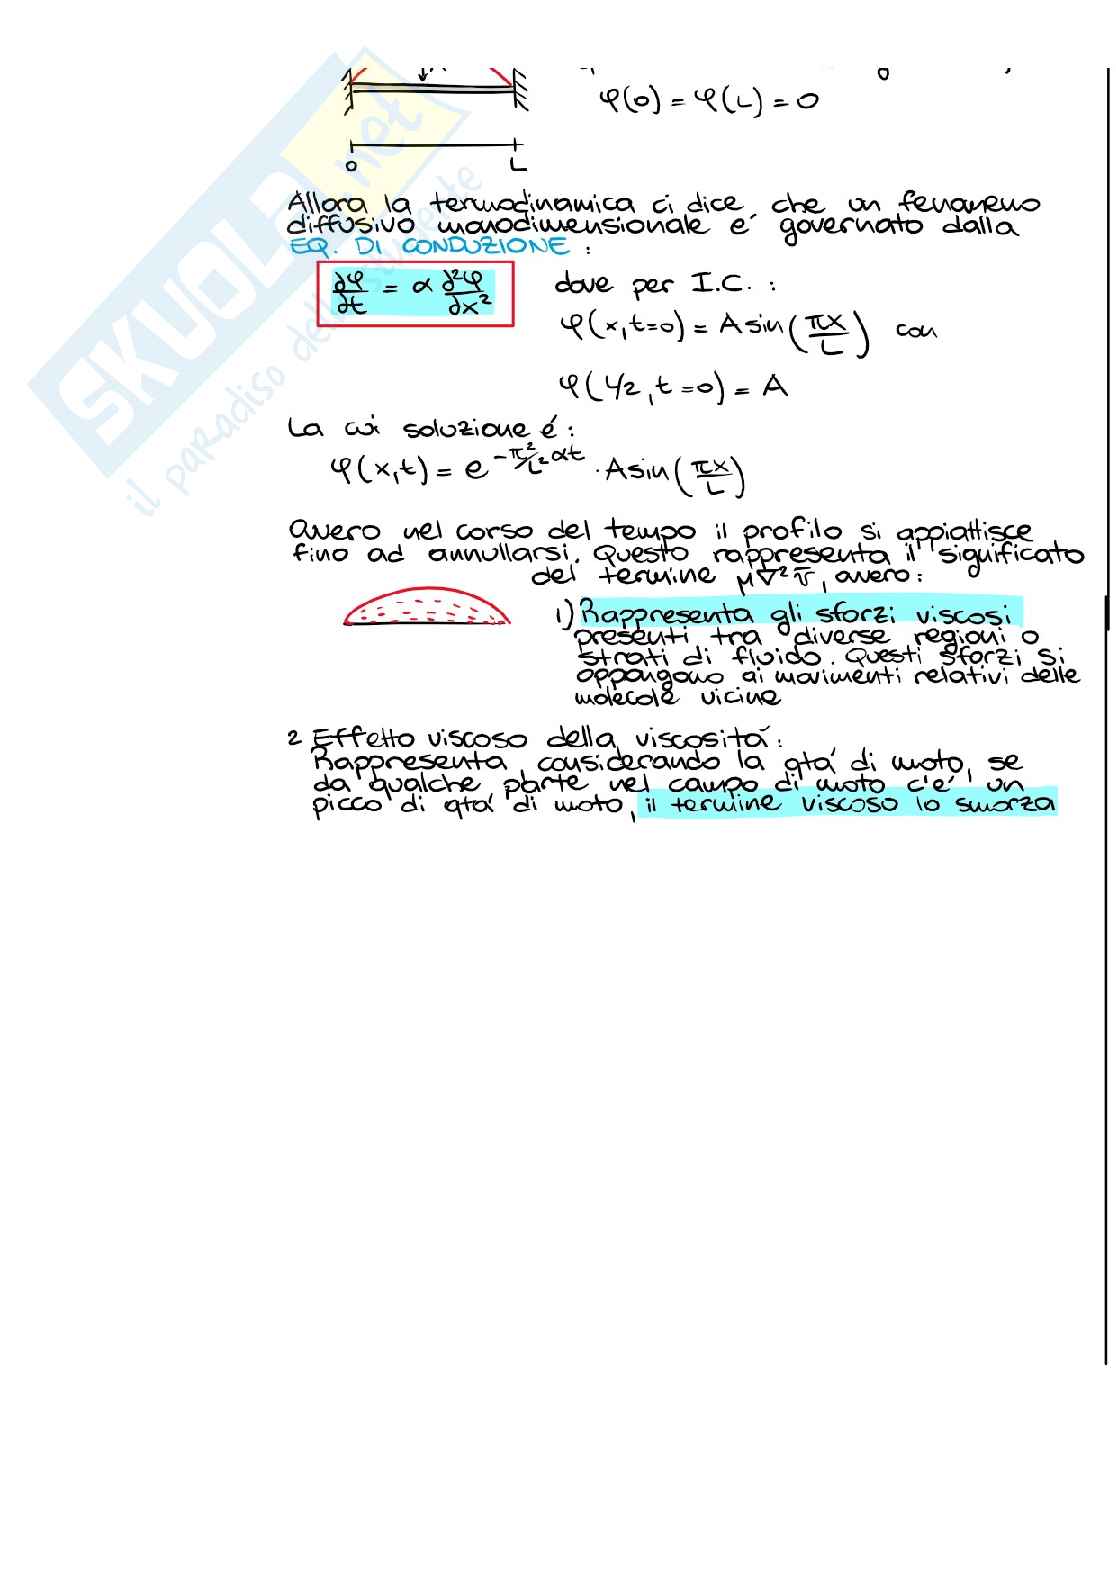 φ(0) = φ(L) = 0
0 L
Allora la termodinamica ci dice che un fenomeno
diffusivo monodimensionale é governato dalla
EQ. DI CONDUZIONE :
∂φ/∂t = α ∂²φ/∂x² dove per I.C. :
φ(x,t=0) = A sin(πx/L) con
φ(L/2, t=0) = A
La cui soluzione é :
φ(x,t) = e^(-π²/L² αt) · A sin(πx/L)
ovvero nel corso del tempo il profilo si appiattisce
fino ad annullarsi. Questo rappresenta il significato
del termine μ∇²v̄, ovvero :
1) Rappresenta gli sforzi viscosi
presenti tra diverse regioni o
strati di fluido. Questi sforzi si
oppongono ai movimenti relativi delle
molecole vicine
2 Effetto viscoso della viscositá :
Rappresenta, considerando la qtá di moto, se
da qualche parte nel campo di moto c'é un
picco di qtá di moto, il termine viscoso lo smorza
SKUOLA.net
il paradiso dello studente